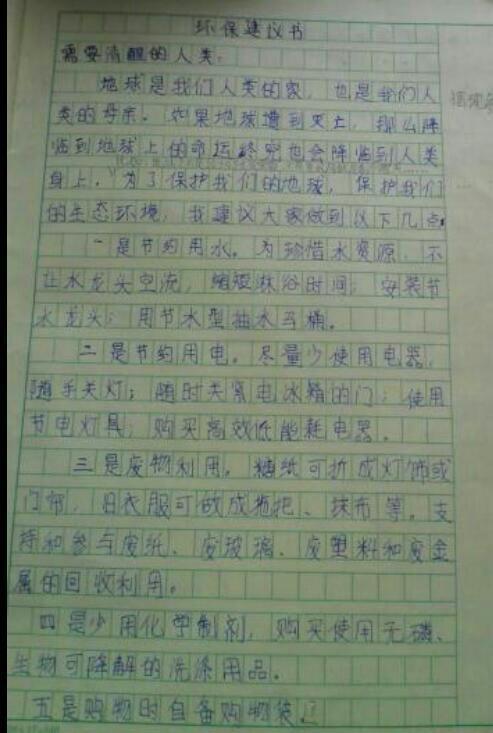 环保建议书
需要清醒的人类:
地球是我们人类的家,也是我们人
类的母亲。如果地球遭到灭亡,那么降
临到地球上的命运终究也会降临到人类
身上。为了保护我们的地球,保护我们
的生态环境,我建议大家做到以下几点
一是节约用水。为珍惜水资源,不
让水龙头空流,缩短淋浴时间;安装节
水龙头;用节水型抽水马桶。
二是节约用电。尽量少使用电器,
随手关灯;随时关紧电冰箱的门;使用
节电灯具;购买高效低能耗电器。
三是废物利用。糖纸可折成灯饰或
门帘,旧衣服可做成拖把、抹布等。支
持和参与废纸、废玻璃、废塑料和废金
属的回收利用。
四是少用化学制剂,购买使用无磷、
生物可降解的洗涤用品。
五是购物时自备购物袋。